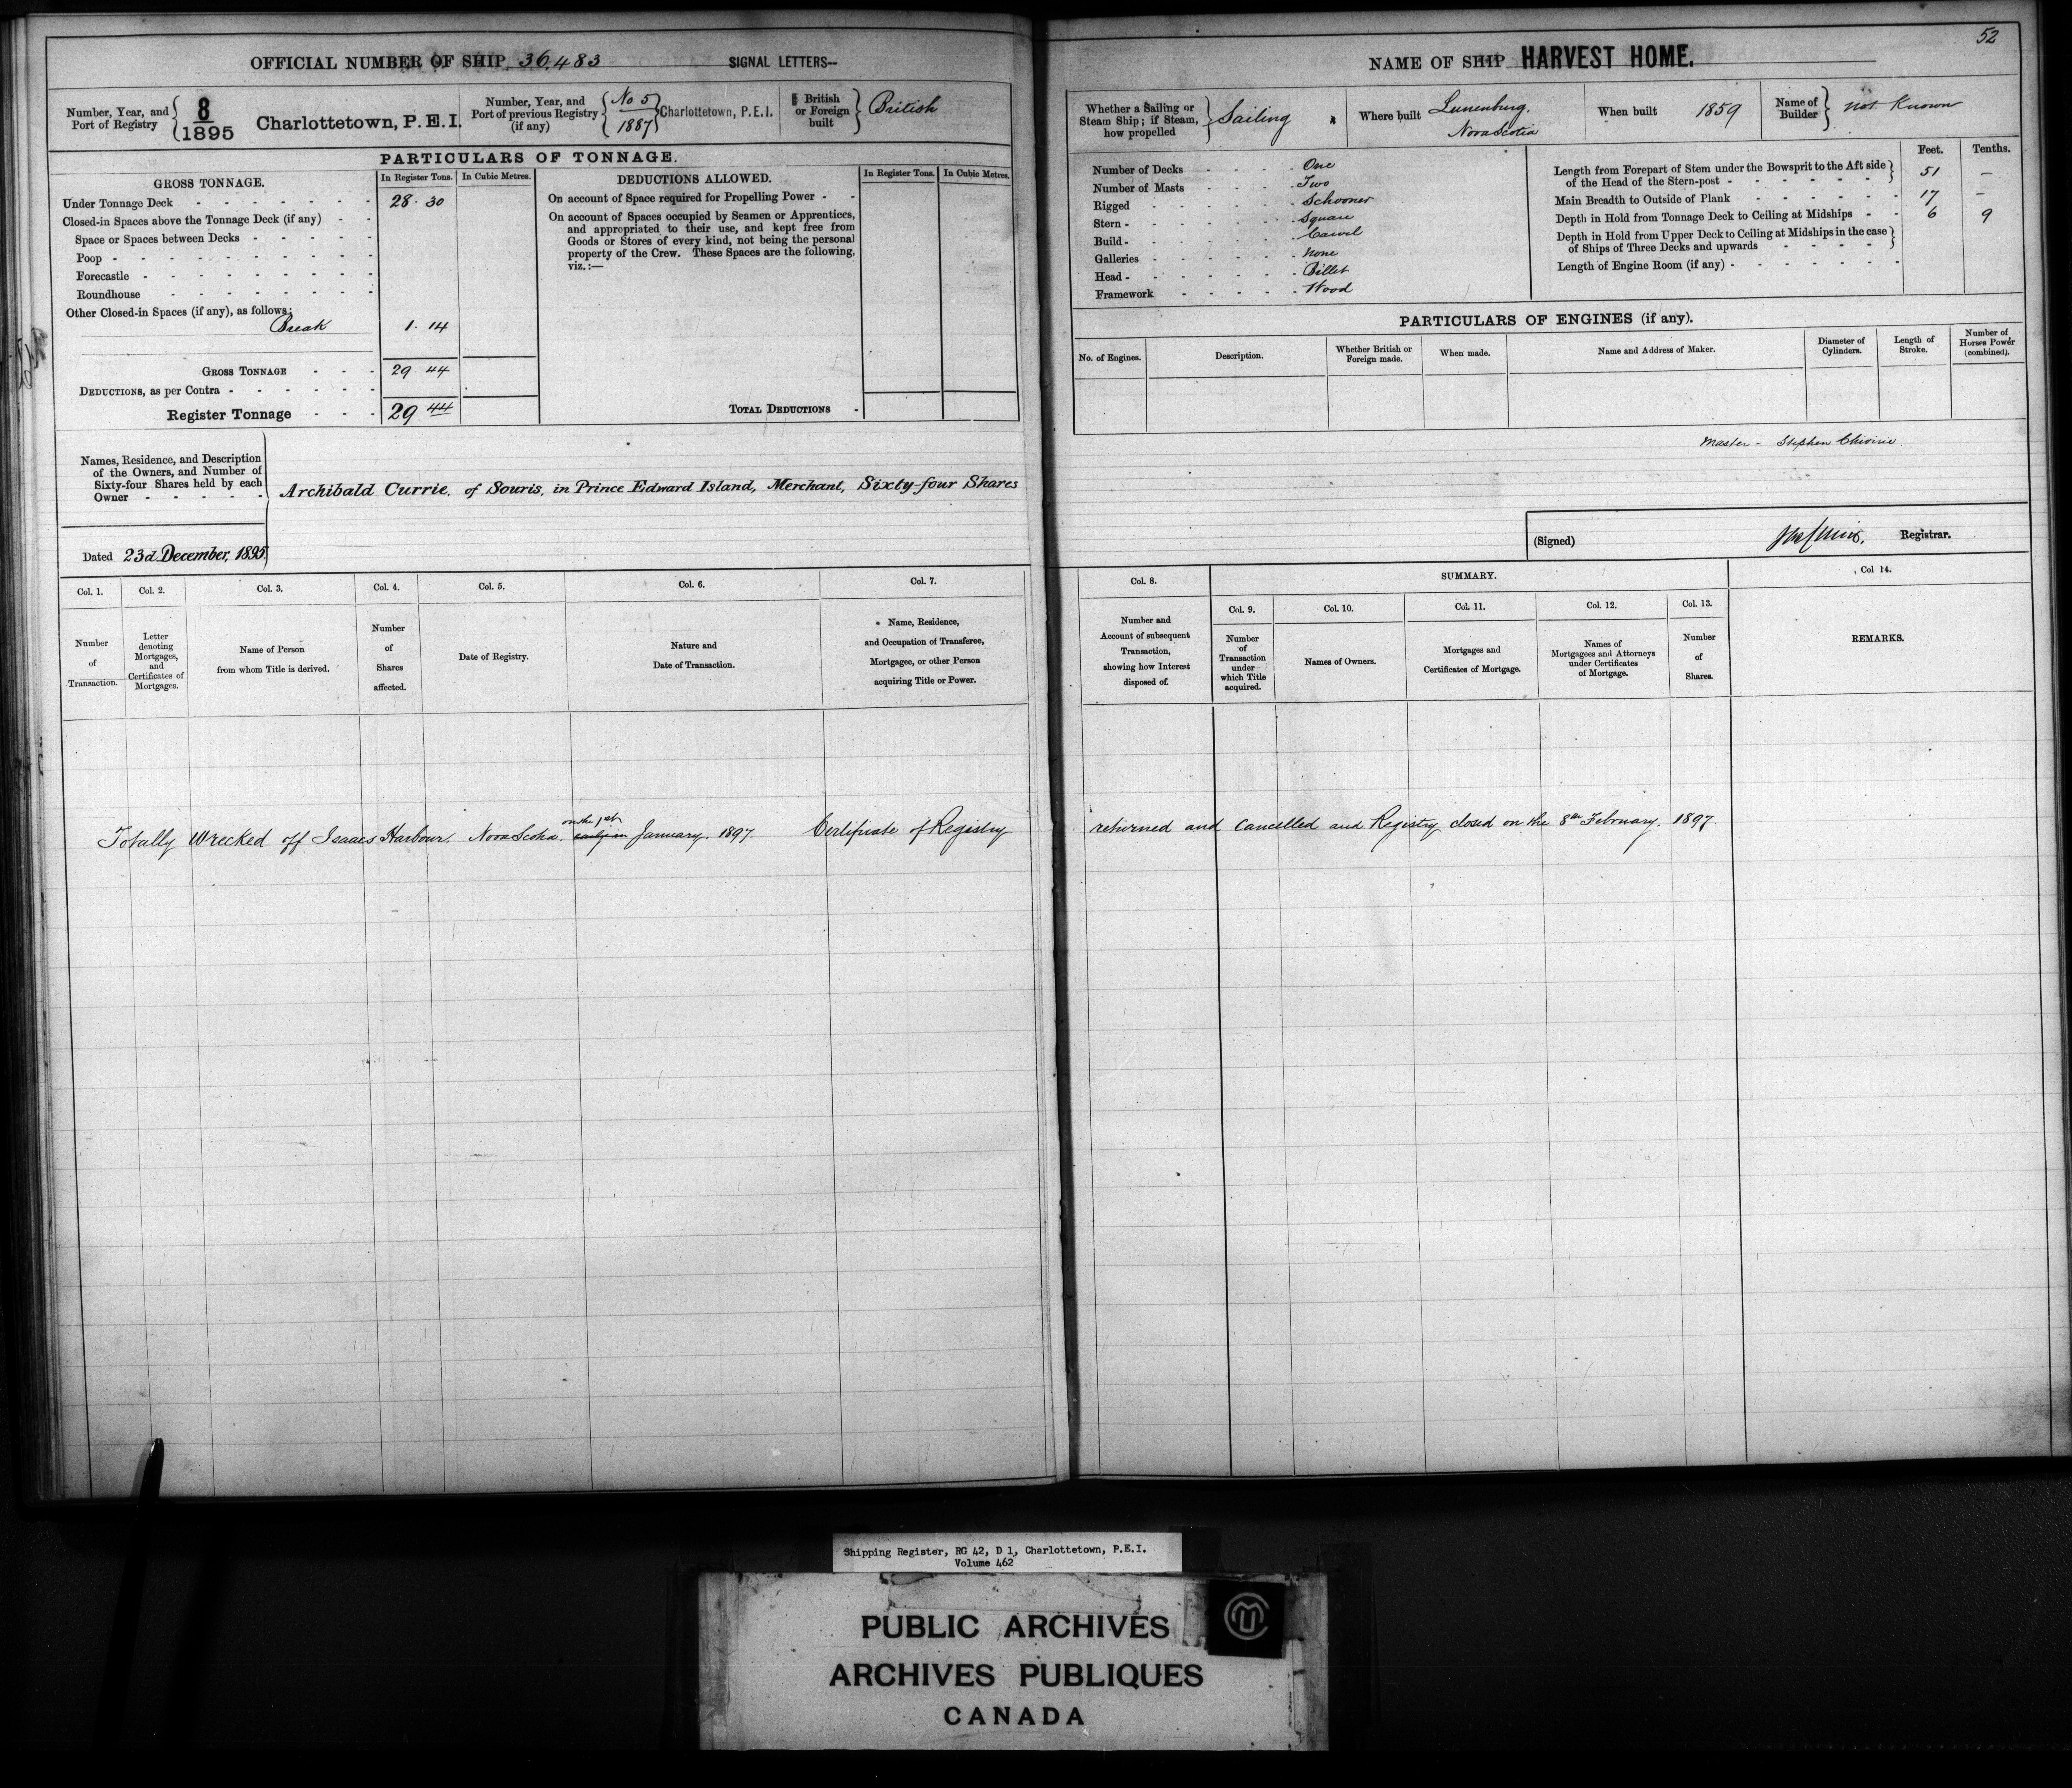 52
OFFICIAL NUMBER OF SHIP 36,483 SIGNAL LETTERS—
Number, Year, and Port of Registry 8 1895 Charlottetown, P.E.I.
Number, Year, and Port of previous Registry (if any) No 5 1887 Charlottetown, P.E.I.
British or Foreign built British
PARTICULARS OF TONNAGE.
GROSS TONNAGE. In Register Tons. In Cubic Metres.
Under Tonnage Deck 28.30
Closed-in Spaces above the Tonnage Deck (if any)
Space or Spaces between Decks
Poop
Forecastle
Roundhouse
Other Closed-in Spaces (if any), as follows:
Break 1.14
GROSS TONNAGE 29.44
DEDUCTIONS, as per Contra
Register Tonnage 29 44
DEDUCTIONS ALLOWED. In Register Tons. In Cubic Metres.
On account of Space required for Propelling Power
On account of Spaces occupied by Seamen or Apprentices,
and appropriated to their use, and kept free from
Goods or Stores of every kind, not being the personal
property of the Crew. These Spaces are the following,
viz.:—
TOTAL DEDUCTIONS
Names, Residence, and Description
of the Owners, and Number of
Sixty-four Shares held by each
Owner
Archibald Currie, of Souris, in Prince Edward Island, Merchant, Sixty-four Shares
Dated 23d December, 1895
NAME OF SHIP HARVEST HOME.
Whether a Sailing or Steam Ship; if Steam, how propelled Sailing
Where built Lunenburg, Nova Scotia
When built 1859
Name of Builder not Known
Number of Decks One
Number of Masts Two
Rigged Schooner
Stern Square
Build Carvel
Galleries None
Head Billet
Framework Wood
Feet. Tenths.
Length from Forepart of Stem under the Bowsprit to the Aft side
of the Head of the Stern-post 51 —
Main Breadth to Outside of Plank 17 —
Depth in Hold from Tonnage Deck to Ceiling at Midships 6 9
Depth in Hold from Upper Deck to Ceiling at Midships in the case
of Ships of Three Decks and upwards
Length of Engine Room (if any)
PARTICULARS OF ENGINES (if any).
No. of Engines. Description. Whether British or Foreign made. When made. Name and Address of Maker. Diameter of Cylinders. Length of Stroke. Number of Horses Power (combined).
Master - Stephen
(Signed) Registrar.
Col. 1. Col. 2. Col. 3. Col. 4. Col. 5. Col. 6. Col. 7.
Number of Transaction.
Letter denoting Mortgages, and Certificates of Mortgages.
Name of Person from whom Title is derived.
Number of Shares affected.
Date of Registry.
Nature and Date of Transaction.
Name, Residence, and Occupation of Transferee, Mortgagee, or other Person acquiring Title or Power.
Col. 8. SUMMARY. Col 14.
Col. 9. Col. 10. Col. 11. Col. 12. Col. 13.
Number and Account of subsequent Transaction, showing how Interest disposed of.
Number of Transaction under which Title acquired.
Names of Owners.
Mortgages and Certificates of Mortgage.
Names of Mortgagees and Attorneys under Certificates of Mortgage.
Number of Shares.
REMARKS.
on the 1st
Totally Wrecked off Isaacs Harbour, Nova Scotia. early in January, 1897. Certificate of Registry returned and cancelled and Registry closed on the 8th February, 1897
Shipping Register, RG 42, D 1, Charlottetown, P.E.I.
Volume 462
PUBLIC ARCHIVES
ARCHIVES PUBLIQUES
CANADA